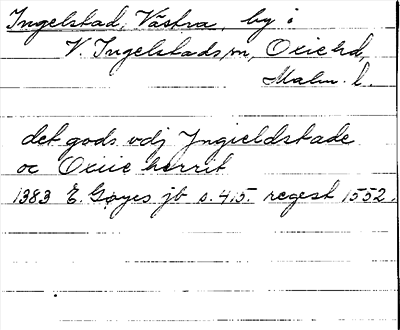 Ingelstad, Västra, by i
V. Ingelstads sn, Oxie hd,
Malm. l.
det gods vdj Yngieldstade
oc Oxiie herrit
1383 E. Gøyes jb s. 415. regest 1552.